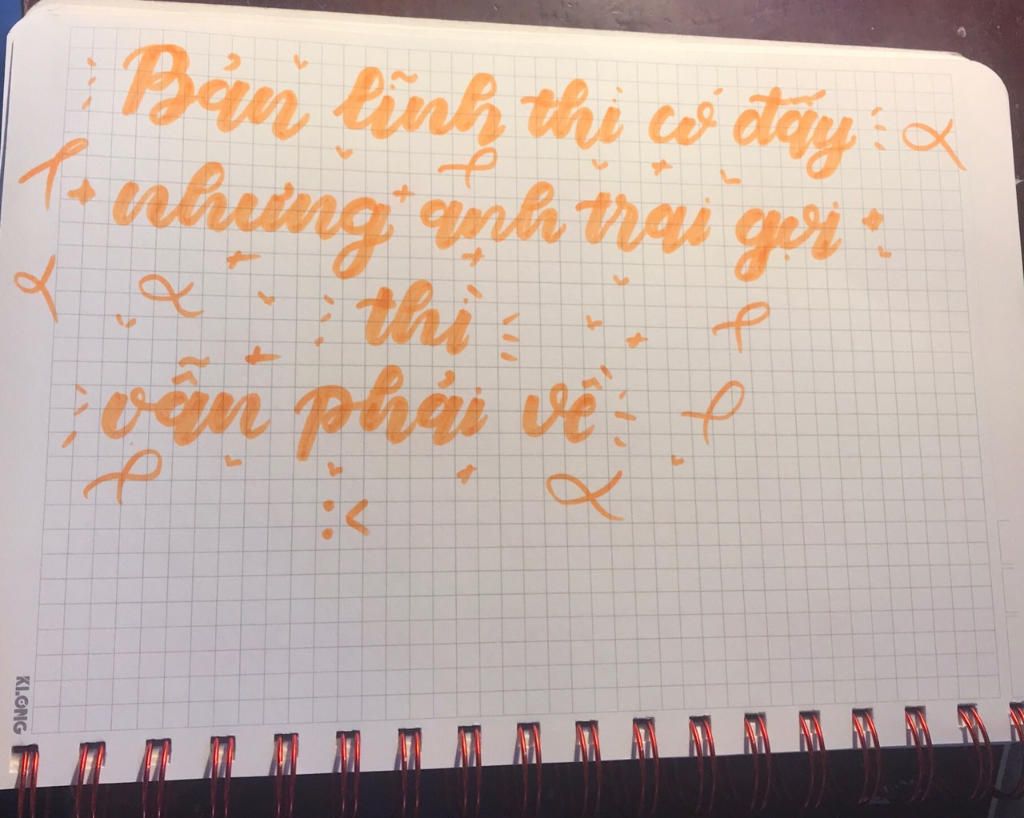 Bản lĩnh thì có đấy
nhưng anh trai gọi
thì
vẫn phải về
:<
KLONG